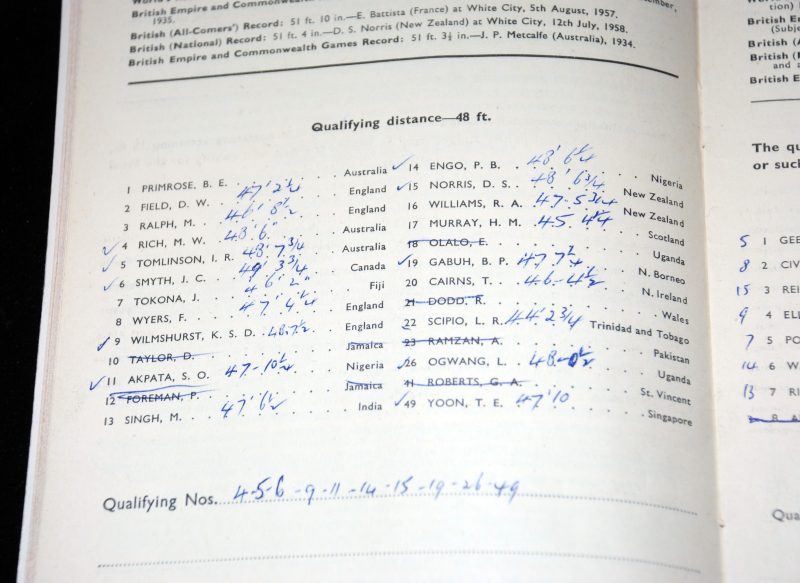 British Empire and Commonwealth
1935.
British (All-Comers') Record: 51 ft. 10 in.—E. Battista (France) at White City, 5th August, 1957.
British (National) Record: 51 ft. 4 in.—D. S. Norris (New Zealand) at White City, 12th July, 1958.
British Empire and Commonwealth Games Record: 51 ft. 3½ in.—J. P. Metcalfe (Australia), 1934.
Qualifying distance—48 ft.
1 PRIMROSE, B. E. Australia
2 FIELD, D. W. 47' 2¼ England
3 RALPH, M. 46' 8½ England
4 RICH, M. W. 48' 6" Australia
5 TOMLINSON, I. R. 48' 7¾ Australia
6 SMYTH, J. C. 49' 3¾ Canada
7 TOKONA, J. 46' 2" Fiji
8 WYERS, F. 47' 4¼ England
9 WILMSHURST, K. S. D. 48-7½ England
10 TAYLOR, D. Jamaica
11 AKPATA, S. O. 47-10½ Nigeria
12 FOREMAN, P. Jamaica
13 SINGH, M. 47' 6½ India
14 ENGO, P. B. 48' 6¼ Nigeria
15 NORRIS, D. S. 48' 6¾ New Zealand
16 WILLIAMS, R. A. 47-5¾ New Zealand
17 MURRAY, H. M. 45.4¼ Scotland
18 OLALO, E. Uganda
19 GABUH, B. P. 47 7½ N. Borneo
20 CAIRNS, T. 46-4½ N. Ireland
21 DODD, R. Wales
22 SCIPIO, L. R. 44'2¾ Trinidad and Tobago
23 RAMZAN, A. Pakistan
26 OGWANG, L. 48-0½ Uganda
41 ROBERTS, G. A. St. Vincent
49 YOON, T. E. 47'10 Singapore
Qualifying Nos. 4-5-6-9-11-14-15-19-26-49
British E
(Subje
British (
British (
and a
British E
The qu
or such
5 1 GEE
8 2 CIV
15 3 REI
9 4 ELL
7 5 PO
14 6 W
13 7 RI
Qua